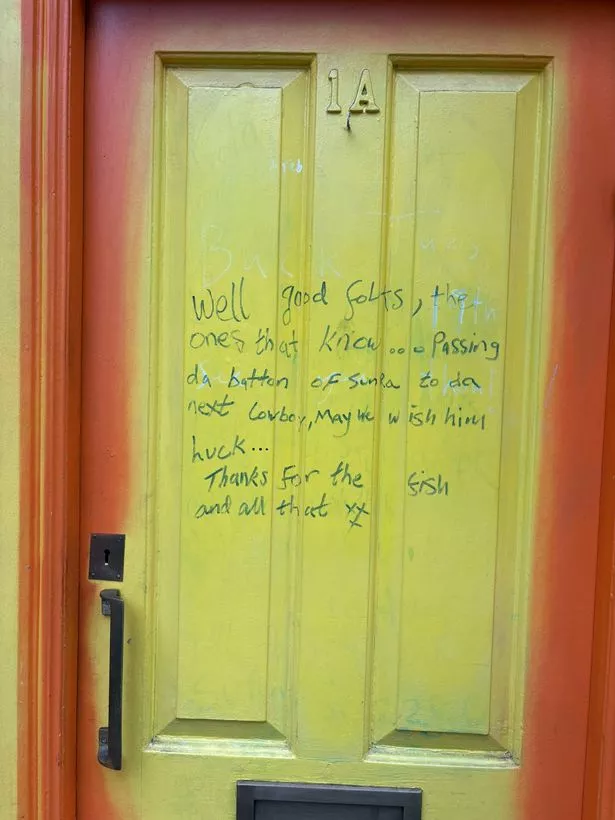 1A
Back Tues
Well good folks, the
ones that know... Passing
da batton of sunRa to da
next Cowboy, May we wish him
luck...
Thanks for the fish
and all that xx
x